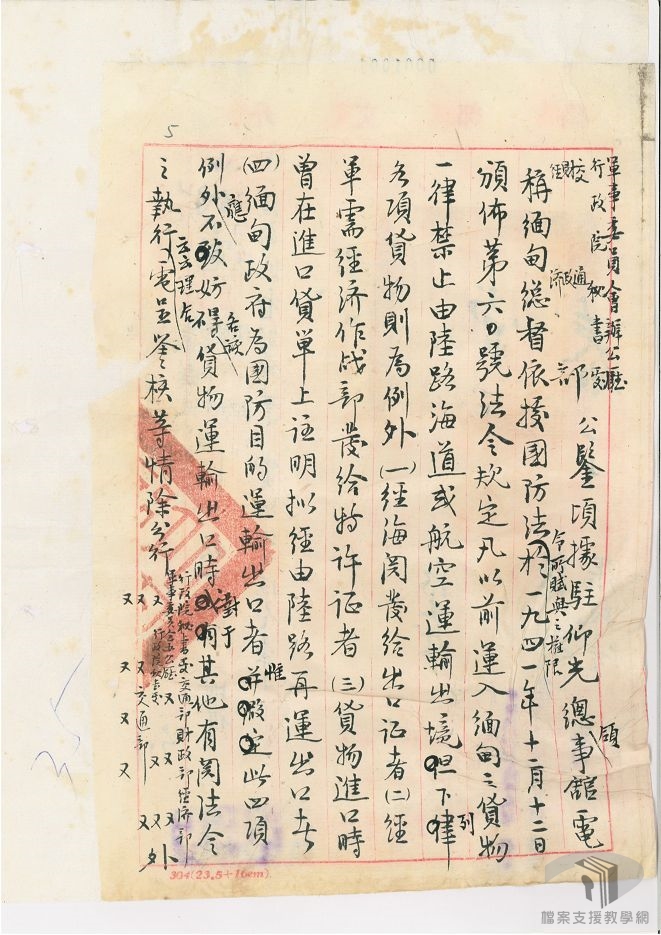 5
軍事委員會辦公廳
行政院秘書處
交通
財政
經濟
部公鑒頃據駐仰光總領事館電
稱緬甸總督依據國防法令所賦與之權限於一九四一年十二月十二日
頒佈第六〇號法令規定凡以前運入緬甸之貨物
一律禁止由陸路海道或航空運輸出境但下列
各項貨物則為例外(一)經海関發給出口証者(二)經
軍需經濟作战部發給特許証者(三)貨物進口時
曾在進口貨單上註明拟經由陸路再運出口者
(四)緬甸政府為國防目的運輸出口者惟此四項
例外應不致妨碍各該貨物運輸出口時對于其他有関法令
之執行云云理合電呈鉴核等情除分行
行政院秘書處交通部財政部經濟部
軍事委員會辦公廳
行政院秘書處
交通部
外
304(23.5×16cm)
檔案支援教學網